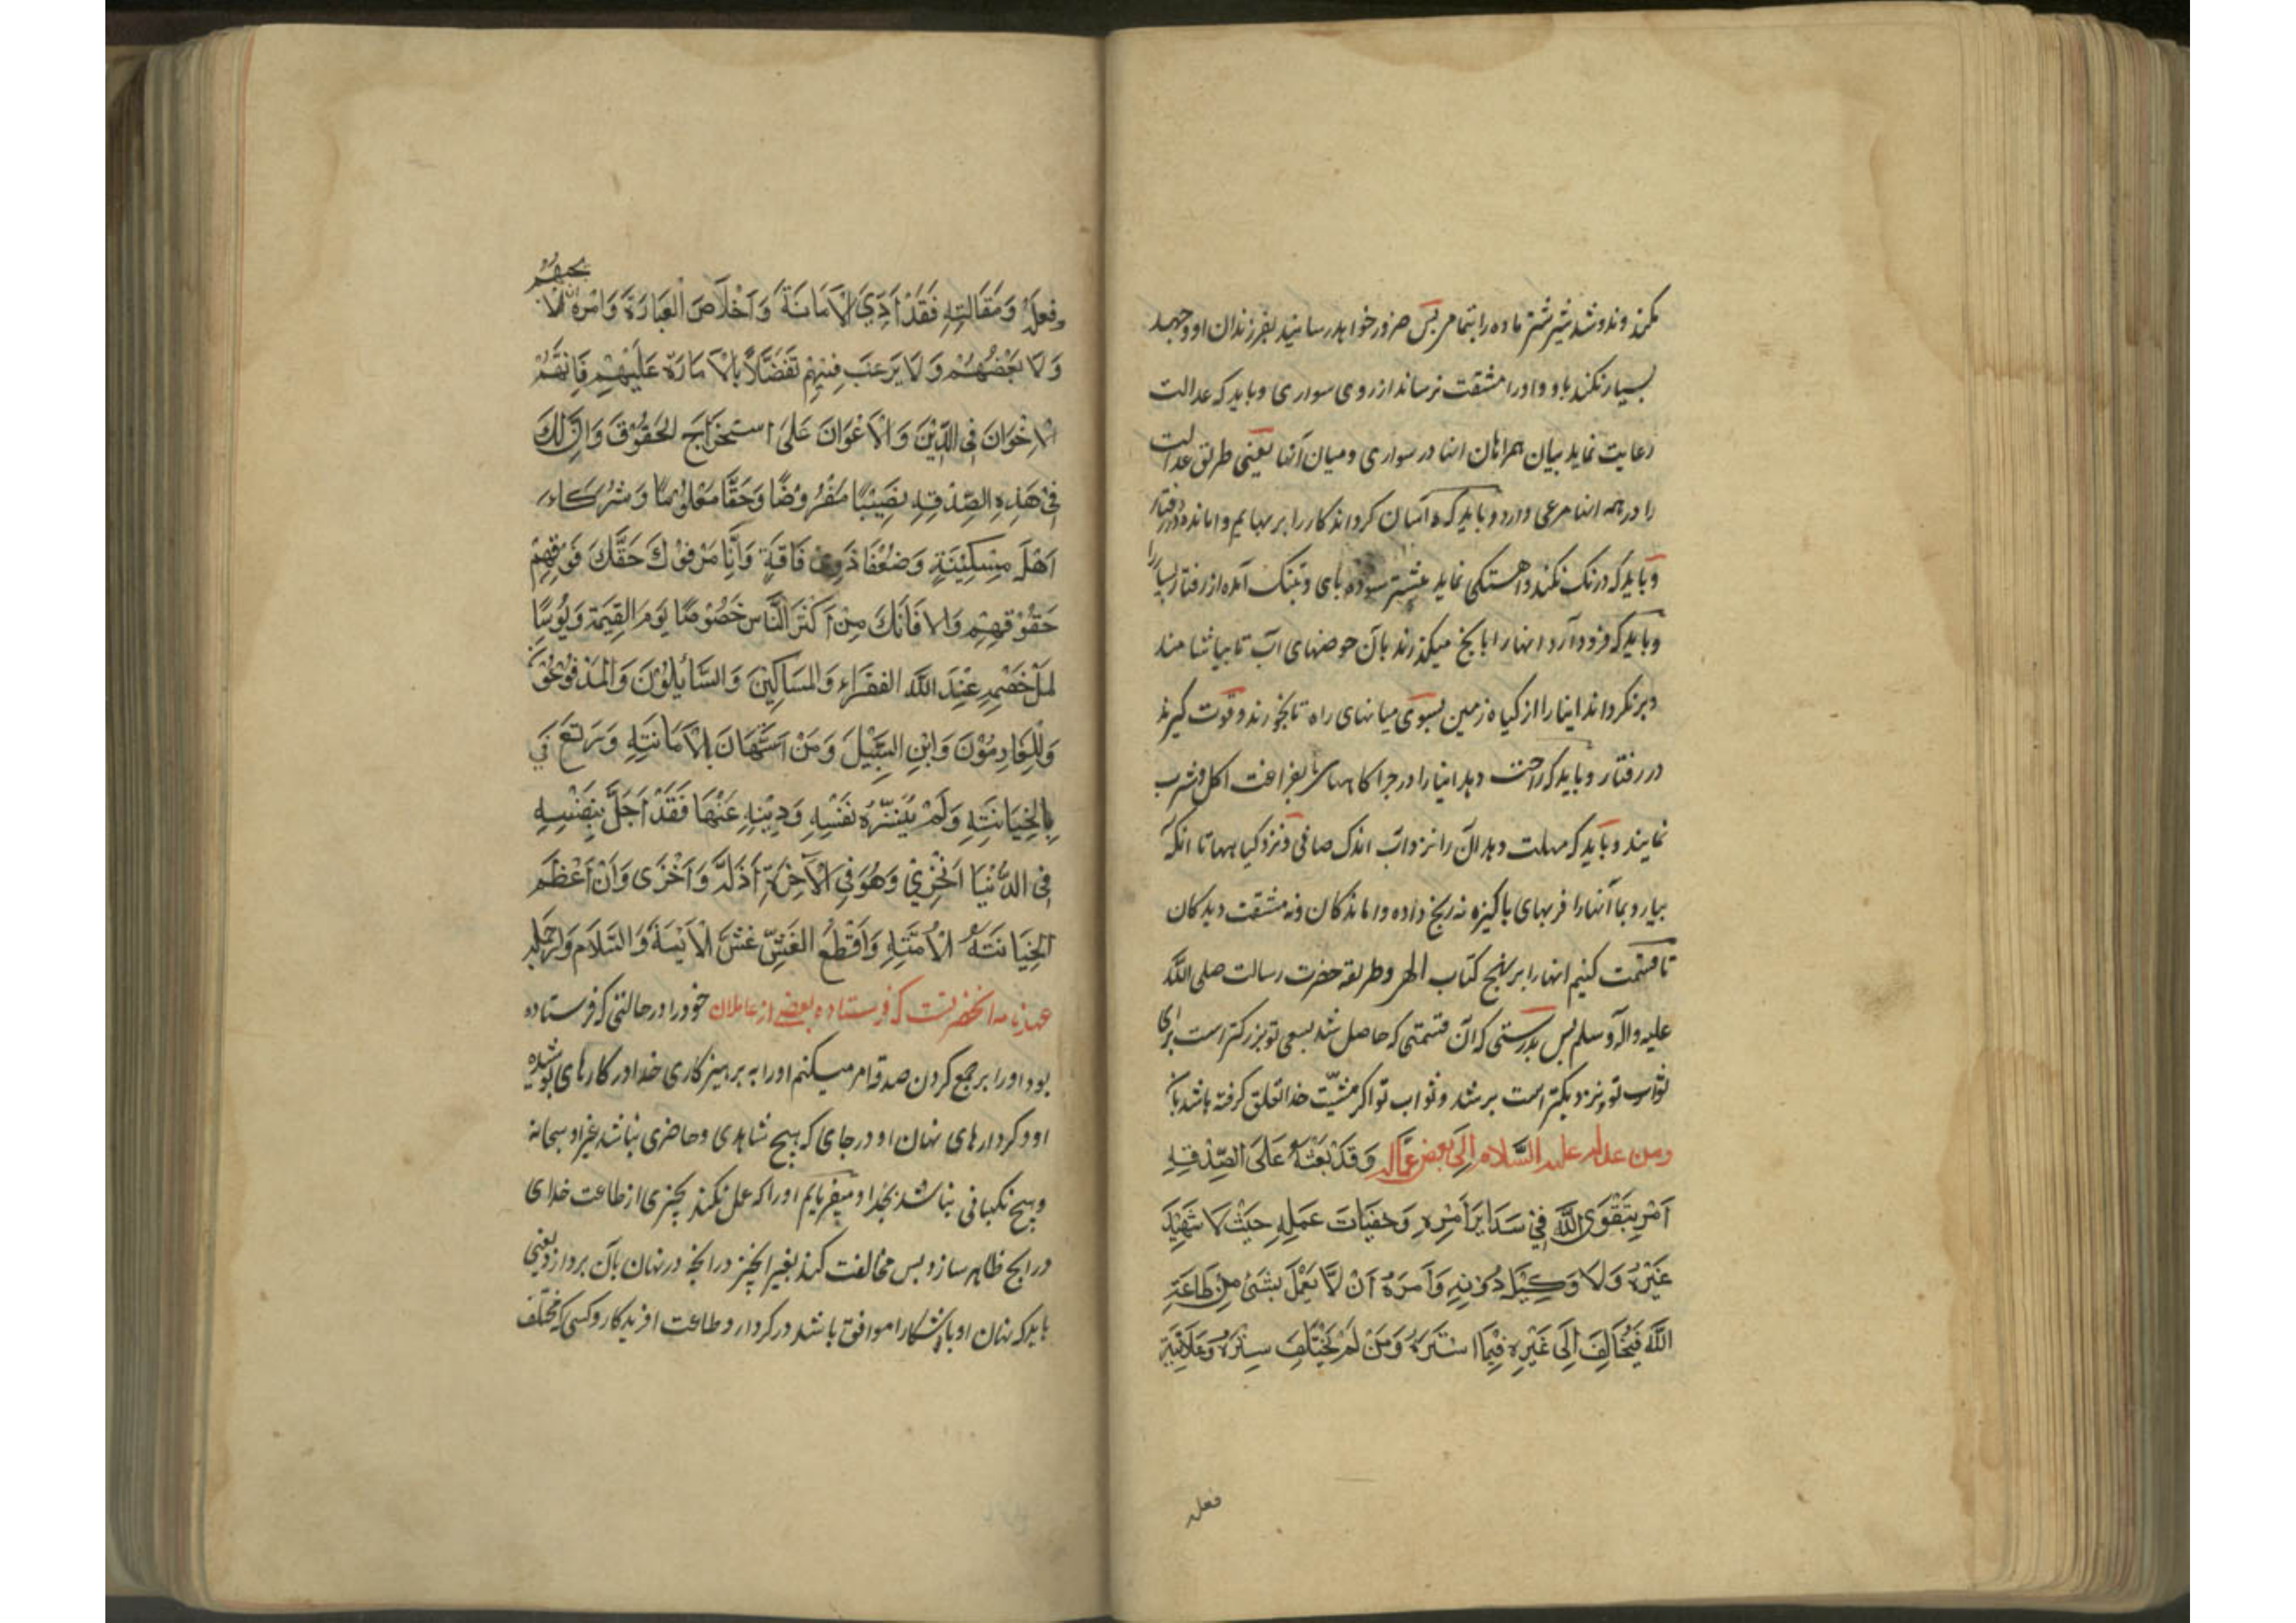 مکند وندوشد شیر شتر ماده را بتمام پس ضرور خواهد رسانید بفرزندان او و جهد
بسیار نکند باو و او را مشقت نرساند از روی سواری و باید که عدالت
رعایت نماید میان همراهان اینها در سواری و میان آنها یعنی طریق عدالت
را در همه اینها مرعی دارد و باید که آسان کرداند کار را بر بهایم وامانده در رفتار
و باید که درنک نکند و اهستکی نماید بشتر سوده پای و بتنک آمده از رفتار بسیار را
و باید که فرود آرد انها را بانچ میکذرند بان حوضهای آب تا بیاشامند
و برنکرداند اینها را از کیاه زمین بسوی میانهای راه تا بخورند و قوت کیرند
در رفتار و باید که راحت دهد اینها را در چراکاهها بفراغت اکل و شرب
نمایند و باید که مهلت دهد آن را نزد آب اندک صافی و نزد کیاهها تا انکه
بیارد بما آنها را فربهای پاکیزه نه رنج داده واماندکان ونه مشقت دیدکان
تا قسمت کنیم انها را بر نهج کتاب الهی و طریقه حضرت رسالت صلی الله
علیه و آله و سلم پس بدرستی که آن قسمتی که حاصل شد بسعی تو بزرکتر است برای
ثواب تو و نزدیکتر است برشد و ثواب تو اکر مشیّت خدا تعلق کرفته باشد بان
ومن عهد له علیه السَّلام اِلَی بعض عمّاله وَقَدْ بَعَثَهُ عَلَی الصِّدْقِهِ
اَمْرِ بِتَقْوَی اللَّهِ فِیْ سَدَایَرَ اَمْرِهِ وَخَفِیَاتَ عَمَلِهِ حَیْثُ لَا شَهِیْدَ
غَیْرُهُ وَلَا وَکِیْلَ دُوْنِهِ وَاَمَرَهُ اَنْ لَّا یَعْمَلَ بِشَیْءٍ مِنْ طَاعَةِ
اللَّهِ فَیُخَالِفَ اِلَی غَیْرِهِ فِیْمَا اسْتَرَهُ وَمَنْ لَمْ یَخْتَلِفَ سِتْرُهُ وَعَلَانِیَةِ
فعله
وفِعلَهُ وَمَقَالَتِهِ فَقَدْ اَدِّیَ الْاَمَانَةَ وَاَخْلَاصَ الْعِبَادَةَ وَاَمَرَهُ اَنْ لَا یجبهم
وَلَا یَعْضُهُمْ وَلَا یَرْعَبَ فِیْهِمْ تَفَضُّلًا بِالْاَمَارَةِ عَلَیْهِمْ فَاِنَّهُمْ
الْاِخْوَانَ فِی الدِّیْنَ وَالْاَعْوَانَ عَلَیَ اسْتَخْرَاجَ الْحُقُوْقَ وَاِنَّ لَکَ
فِیْ هَذِهِ الصِّدْقِهِ نَصِیْبًا مَفْرُوْضًا وَحَقًّا مَعْلُوْمًا وَشُرَکَاءَ
اَهْلَ مِسْکِیْنَةٍ وَضُعْفَا ذَوِیْ فَاقَةٍ وَاَنَّا مَرْفُوْكَ حَقَّكَ فَوَفِهِمْ
حُقُوْقَهِمْ وَاِلَا فَاَنَكَ مِنْ اَکْثَرَ النَّاسِ خَصُوْصًا یَوْمَ الْقِیَمَةِ وَیُؤْسًا
لِمَنْ خَصْمِهِ عِنْدَ اللَّهِ الْفُقَرَاءِ وَالْمَسَاکِیْنَ وَالسَّائِلُوْنَ وَالْمَدْفُوْعُوْنَ
وَالْغَارِمُوْنَ وَابْنِ السَّبِیْلَ وَمَنْ اسْتَهَانَ بِالْاَمَانَتِهِ وَیَرْتَعَ فِیْ
بِالْخِیَانَتِهِ وَلَمْ یُنَزِّهُ نَفْسِهِ وَدِیْنِهِ عَنْهَا فَقَدْ اَحَلَّ بِنَفْسِهِ
فِی الدُّنْیَا اَلْخِزْیَ وَهُوَ فِی الْآخِرَةِ اَذَلَّ وَاَخْزَی وَاَنْ اَعْظَمَ
الْخِیَانَتَهُ الْاُمَّتِهِ وَاَفْطَعُ الْغَشِّ غَشَّ الْاَئِمَّةَ وَالسَّلَام
عهدنامه انحضرتست که فرستاده ببعضی از عاملان خود را در حالتی که فرستاده
بود او را بر جمع کردن صدقه امر میکنم او را به پرهیزکاری خدا در کارهای پوشیده
او و کردارهای نهان او در جای که هیچ شاهدی و حاضری نباشد غیر او سبحانه
و هیچ نکهبانی نباشد بجز او و میفرمایم او را که عمل نکند بچیزی از طاعت خدای
در انچ ظاهر سازد پس مخالفت کند بغیر انچیز در انچه در نهان بآن پردازد یعنی
باید که نهان او با آشکارا موافق باشد در کردار و طاعت افریدکار و کسی که مختلف